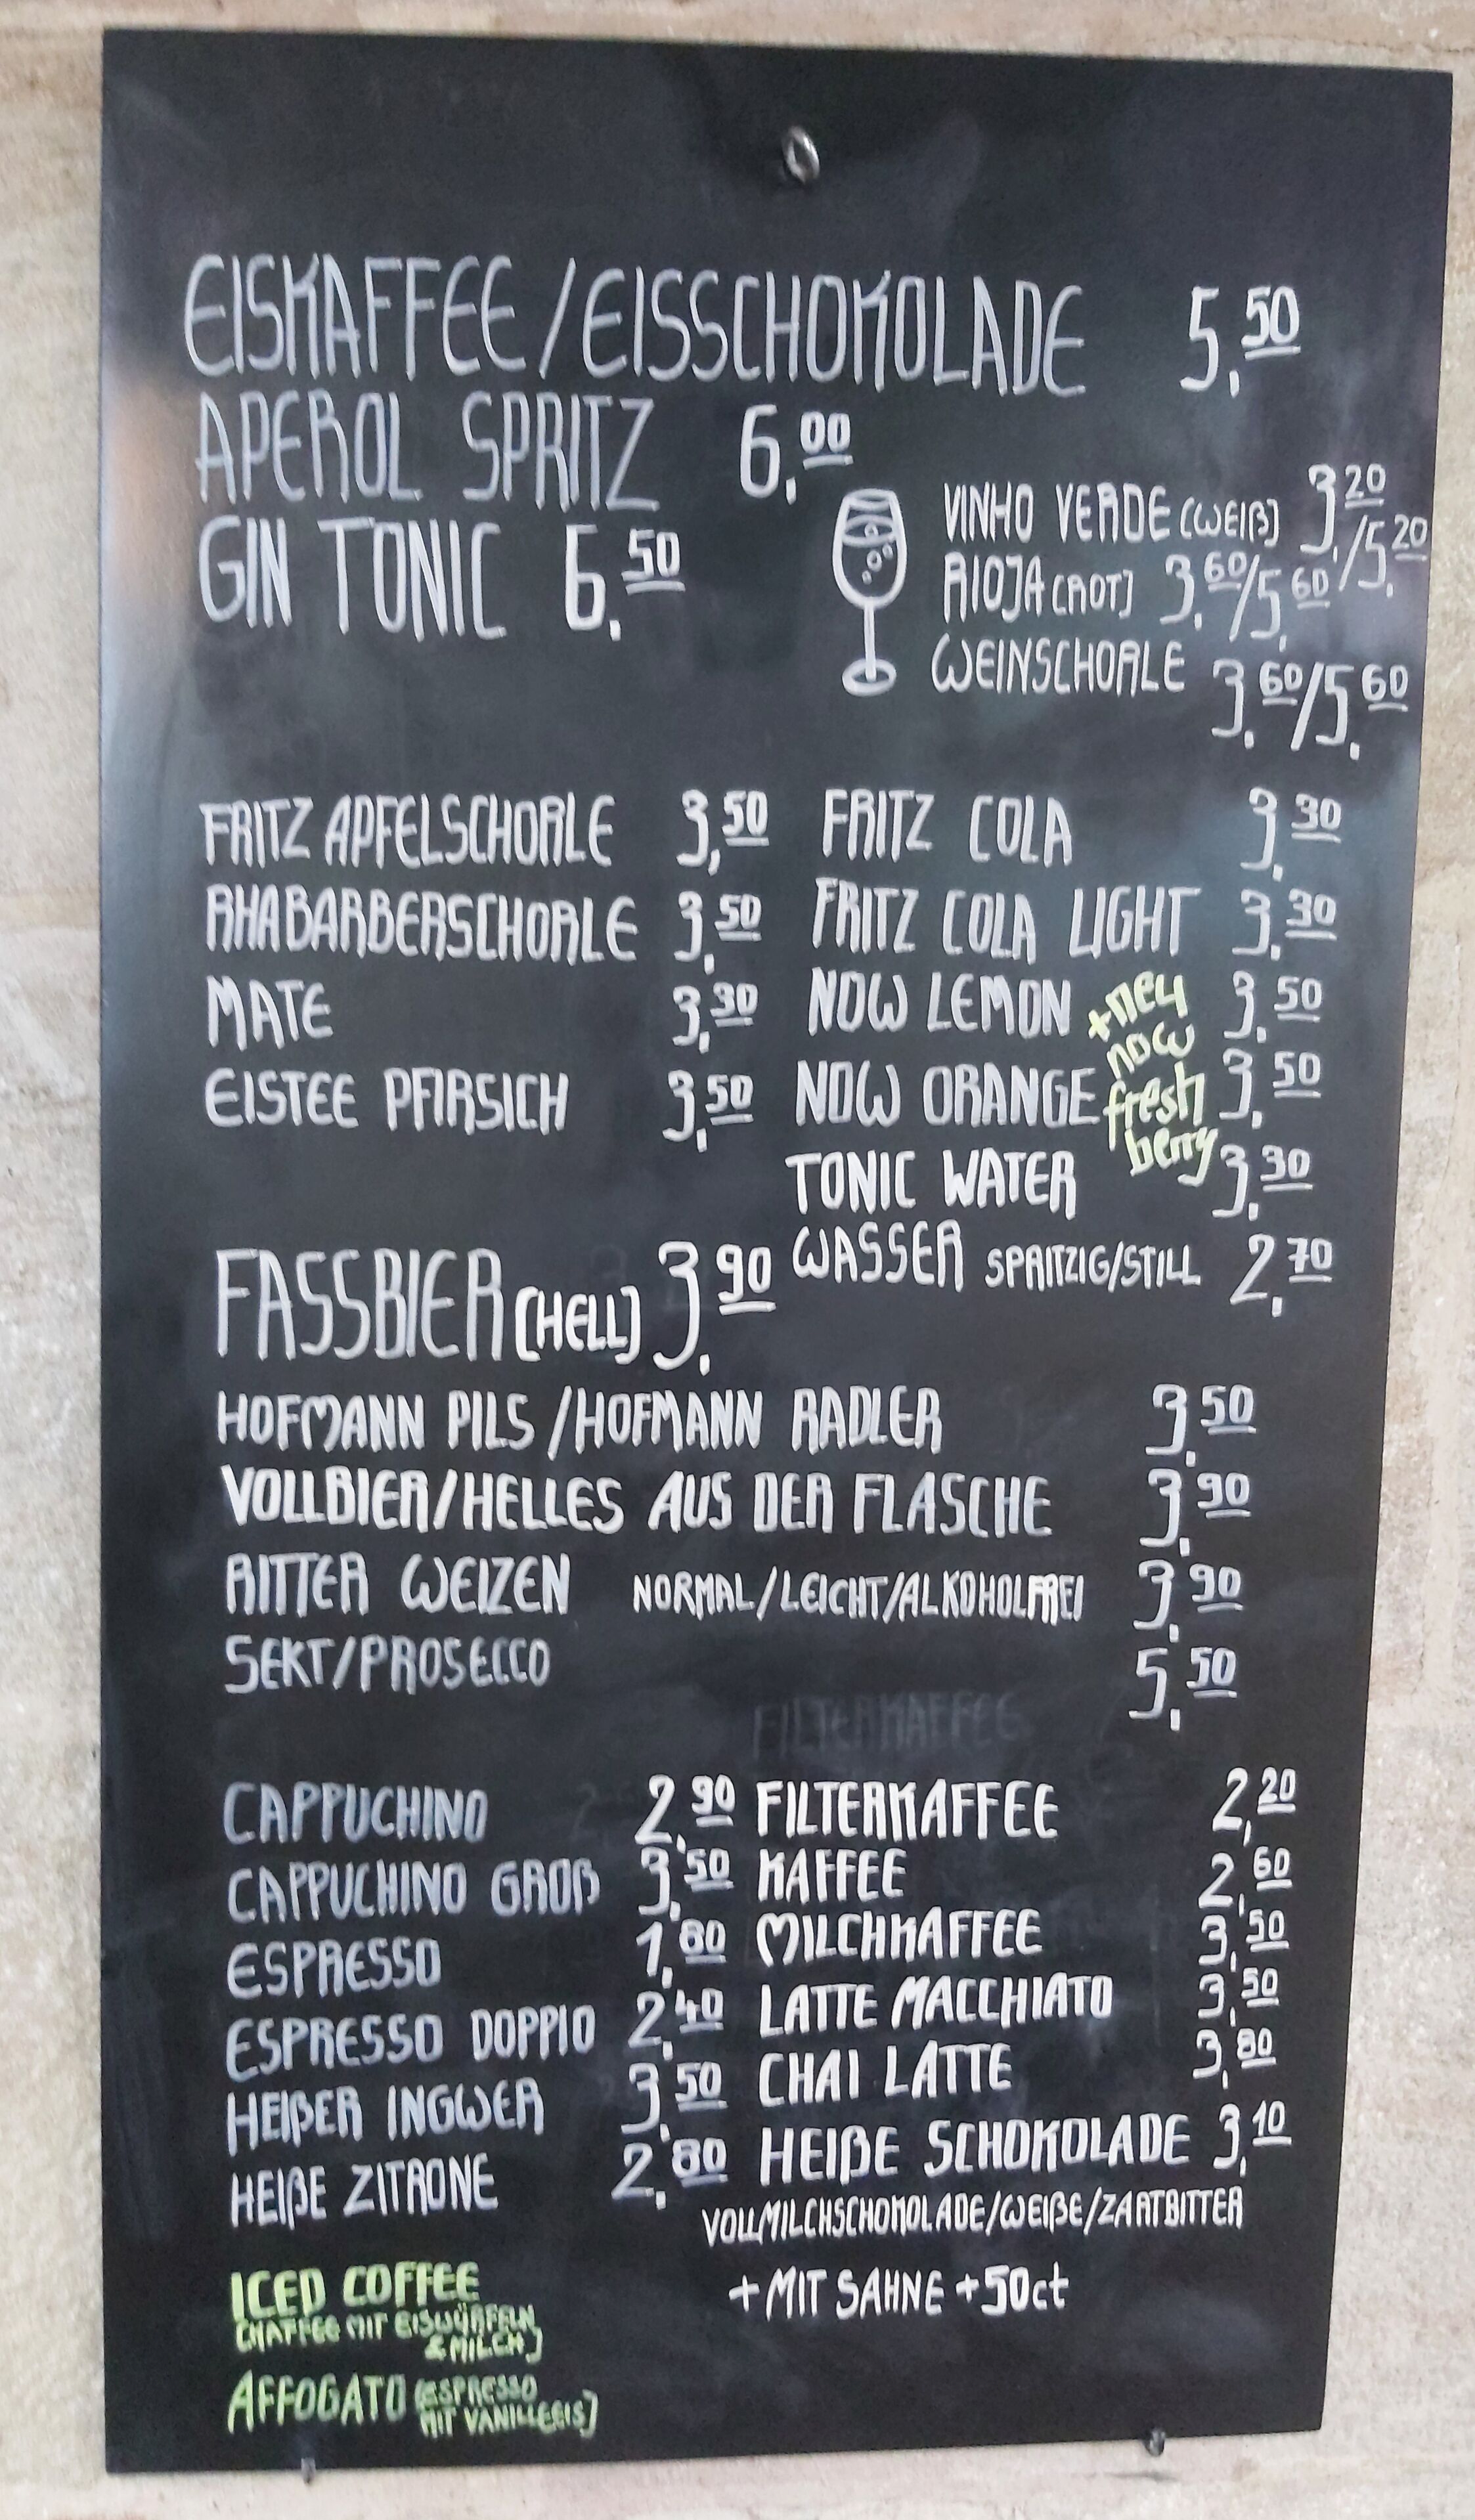 EISKAFFEE/EISSCHOKOLADE 5,50
APEROL SPRITZ 6,00
GIN TONIC 6,50
VINHO VERDE (WEIß) 3,20/5,20
RIOJA (ROT) 3,60/5,60
WEINSCHORLE 3,60/5,60
FRITZ APFELSCHORLE 3,50
RHABARBERSCHORLE 3,50
MATE 3,30
EISTEE PFIRSICH 3,50
FRITZ COLA 3,30
FRITZ COLA LIGHT 3,30
NOW LEMON 3,50
NOW ORANGE 3,50
+neu
now
fresh
berry
TONIC WATER 3,30
WASSER SPRITZIG/STILL 2,70
FASSBIER (HELL) 3,90
HOFMANN PILS/HOFMANN RADLER 3,50
VOLLBIER/HELLES AUS DER FLASCHE 3,90
RITTER WEIZEN NORMAL/LEICHT/ALKOHOLFREI 3,90
SEKT/PROSECCO 5,50
FILTERKAFFEE
CAPPUCHINO 2,90
CAPPUCHINO GROß 3,50
ESPRESSO 1,80
ESPRESSO DOPPIO 2,40
HEIßER INGWER 3,50
HEIßE ZITRONE 2,80
FILTERKAFFEE 2,20
KAFFEE 2,60
MILCHKAFFEE 3,50
LATTE MACCHIATO 3,50
CHAI LATTE 3,80
HEIßE SCHOKOLADE 3,10
VOLLMILCHSCHOKOLADE/WEIßE/ZARTBITTER
+ MIT SAHNE +50ct
ICED COFFEE
(KAFFEE MIT EISWÜRFELN
& MILCH)
AFFOGATO (ESPRESSO
MIT VANILLEEIS)